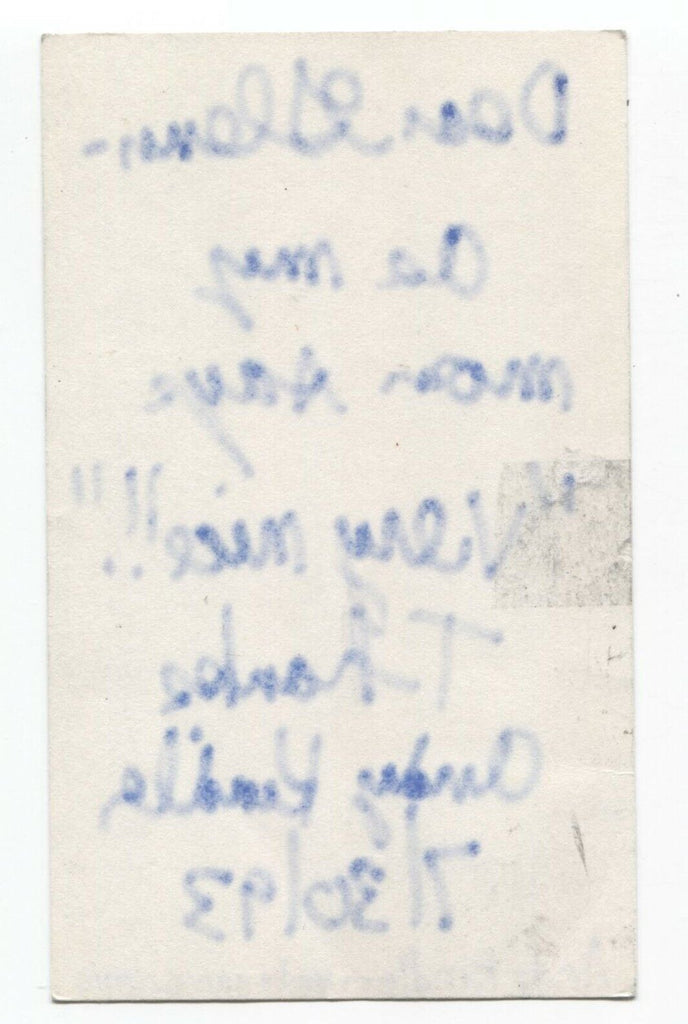 Dear Glenn,-
As my
mom says
"Very nice!!"
Thanks
Andy Kindler
7/30/93